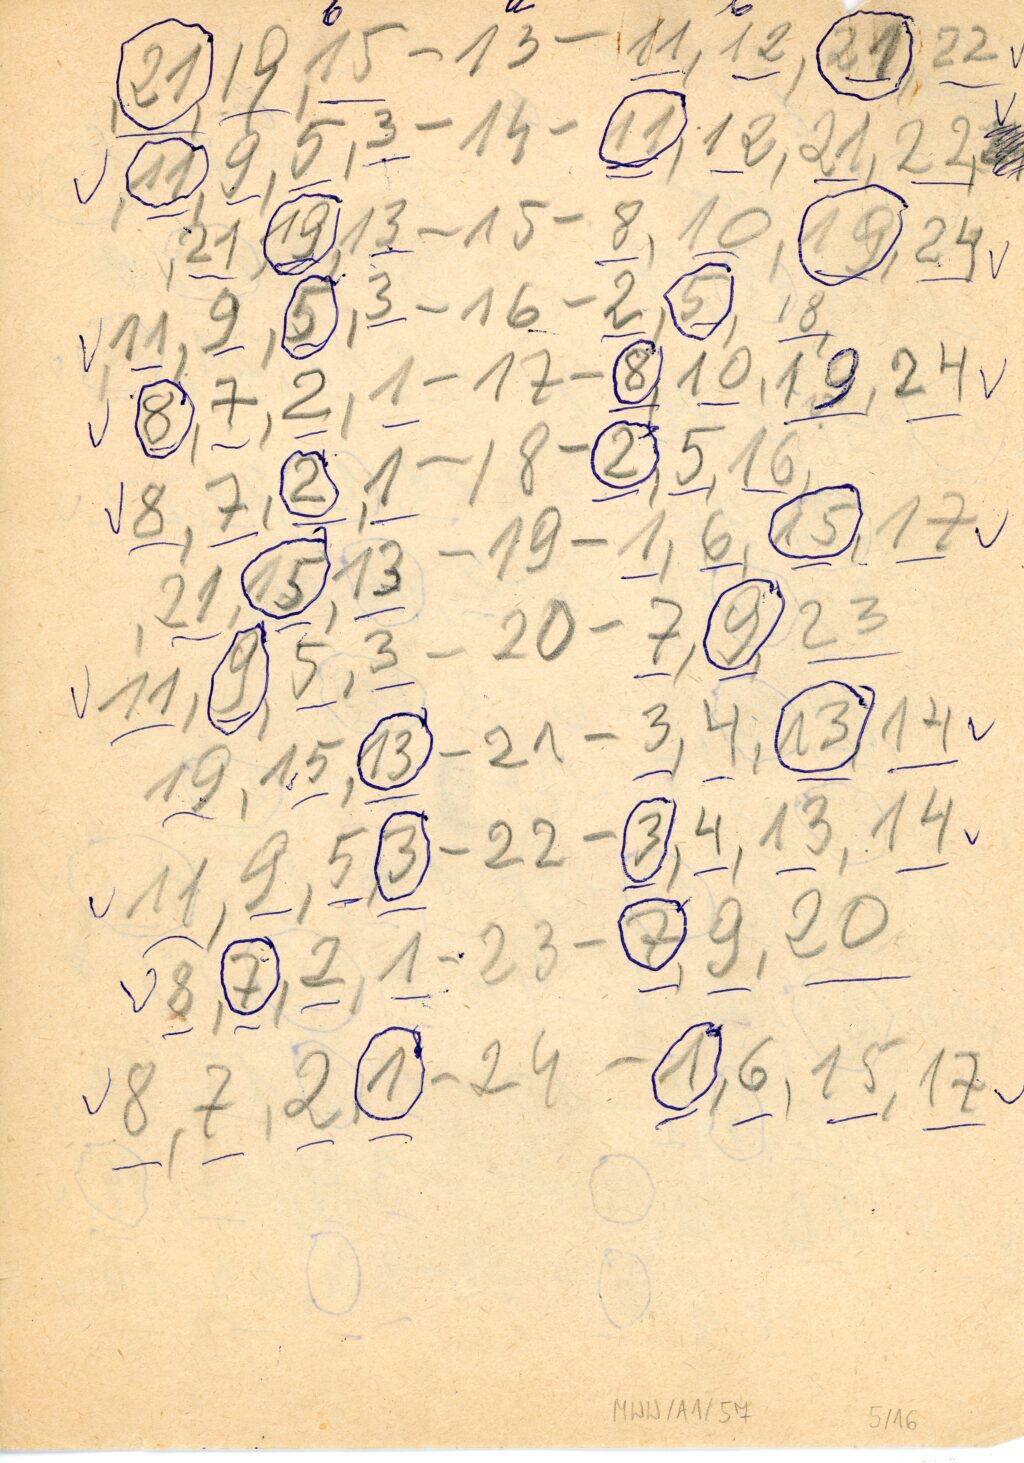 b a b
21, 19, 15 - 13 - 11, 12, 21, 22 ✓
✓ 11, 9, 5, 3 - 14 - 11, 12, 21, 22, ✓
, 21, 19, 13 - 15 - 8, 10, 19, 24 ✓
✓ 11, 9, 5, 3 - 16 - 2, 5, 18,
✓ 8, 7, 2, 1 - 17 - 8, 10, 19, 24 ✓
✓ 8, 7, 2, 1 - 18 - 2, 5, 16,
, 21, 15, 13 - 19 - 1, 6, 15, 17 ✓
✓ 11, 9, 5, 3 - 20 - 7, 9, 23
19, 15, 13 - 21 - 3, 4, 13, 14 ✓
✓ 11, 9, 5, 3 - 22 - 3, 4, 13, 14 ✓
✓ 8, 7, 2, 1 - 23 - 7, 9, 20
✓ 8, 7, 2, 1 - 24 - 1, 6, 15, 17 ✓
MWW/A1/57 5/16